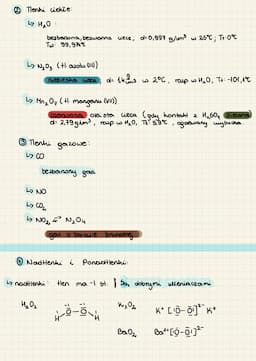 ② Tlenki ciekłe:
↳ H₂O:
bezbarwna, bezwonna ciecz, d: 0,997 g/cm³ w 25°C; Tt: 0°C
Tw: 99,97°C
↳ N₂O₃ (tl. azotu (III))
niebieska ciecz d: 1,4 w 2°C, rozp w H₂O, Tt: -101,1°C
↳ Mn₂O₇ (tl. manganu (VII))
czerwona oleista ciecz (gdy kontakt z H₂SO₄ zielona)
d: 2,79 g/cm³, rozp w H₂O, Tt: 5,9°C,
③ Tlenki gazowe:
↳ CO
bezbarwny gaz
↳ NO
↳ CO₂
↳ NO₂ ⇄ N₂O₄
gaz o barwie brunatnej
④ Nadtlenki i Ponadtlenki:
↳ nadtlenki: tlen ma -I st. | Są dobrymi utleniaczami
H₂O₂ H-O-O-H K₂O₂ K⁺ [:O-O:]²⁻ K⁺
BaO₂ Ba²⁺ [:O-O:]²⁻